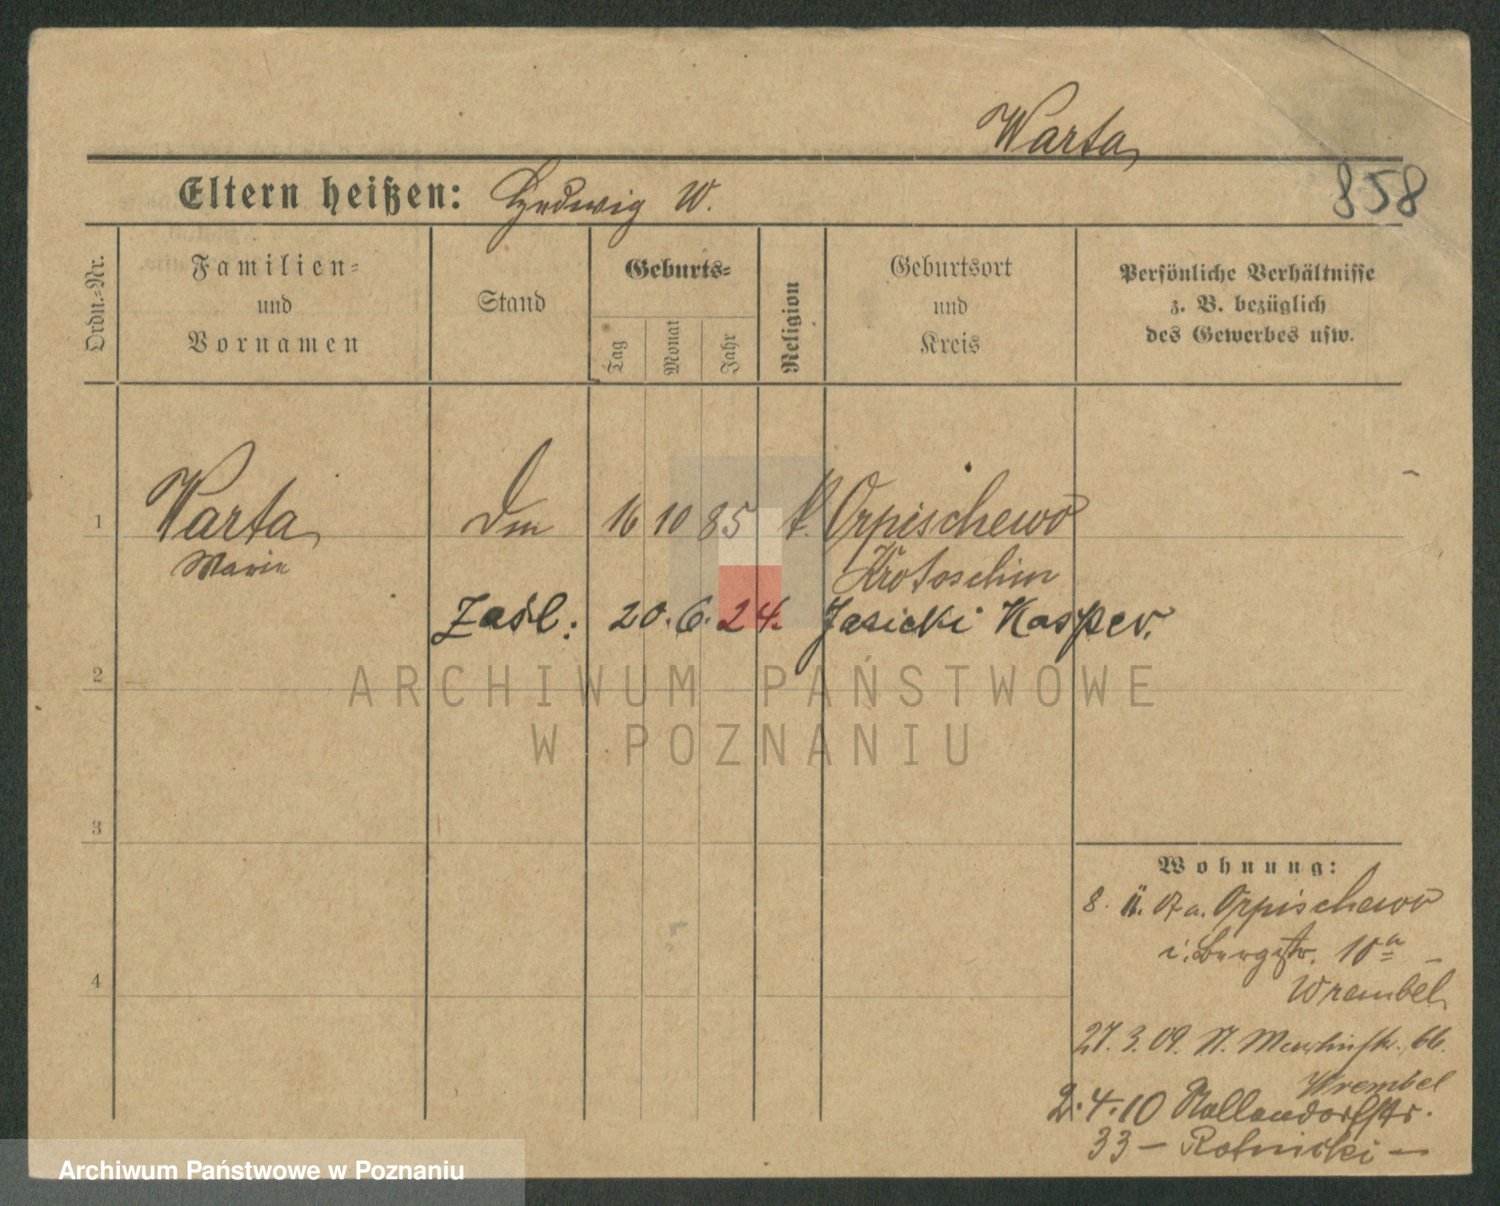 Warta
858
Eltern heißen: Hedwig W.
Ordn.-Nr.
Familien-
und
Vornamen
Stand
Geburts-
Tag
Monat
Jahr
Religion
Geburtsort
und
Kreis
Persönliche Verhältnisse
z. B. bezüglich
des Gewerbes usw.
1 Warta 16 10 85 k. Orpischewo
Marie Krotoschin
Zasl: 20.6.24. Jasicki Kasper.
2
ARCHIWUM PAŃSTWOWE
W POZNANIU
3
Wohnung:
8. 11. 07 a. Orpischewo
i. Bergstr. 10a
Wrembel
4
27.3.09. N. 66.
Wrembel
2.4.10 Nollendorfstr.
33 - Ratnicki -
Archiwum Państwowe w Poznaniu